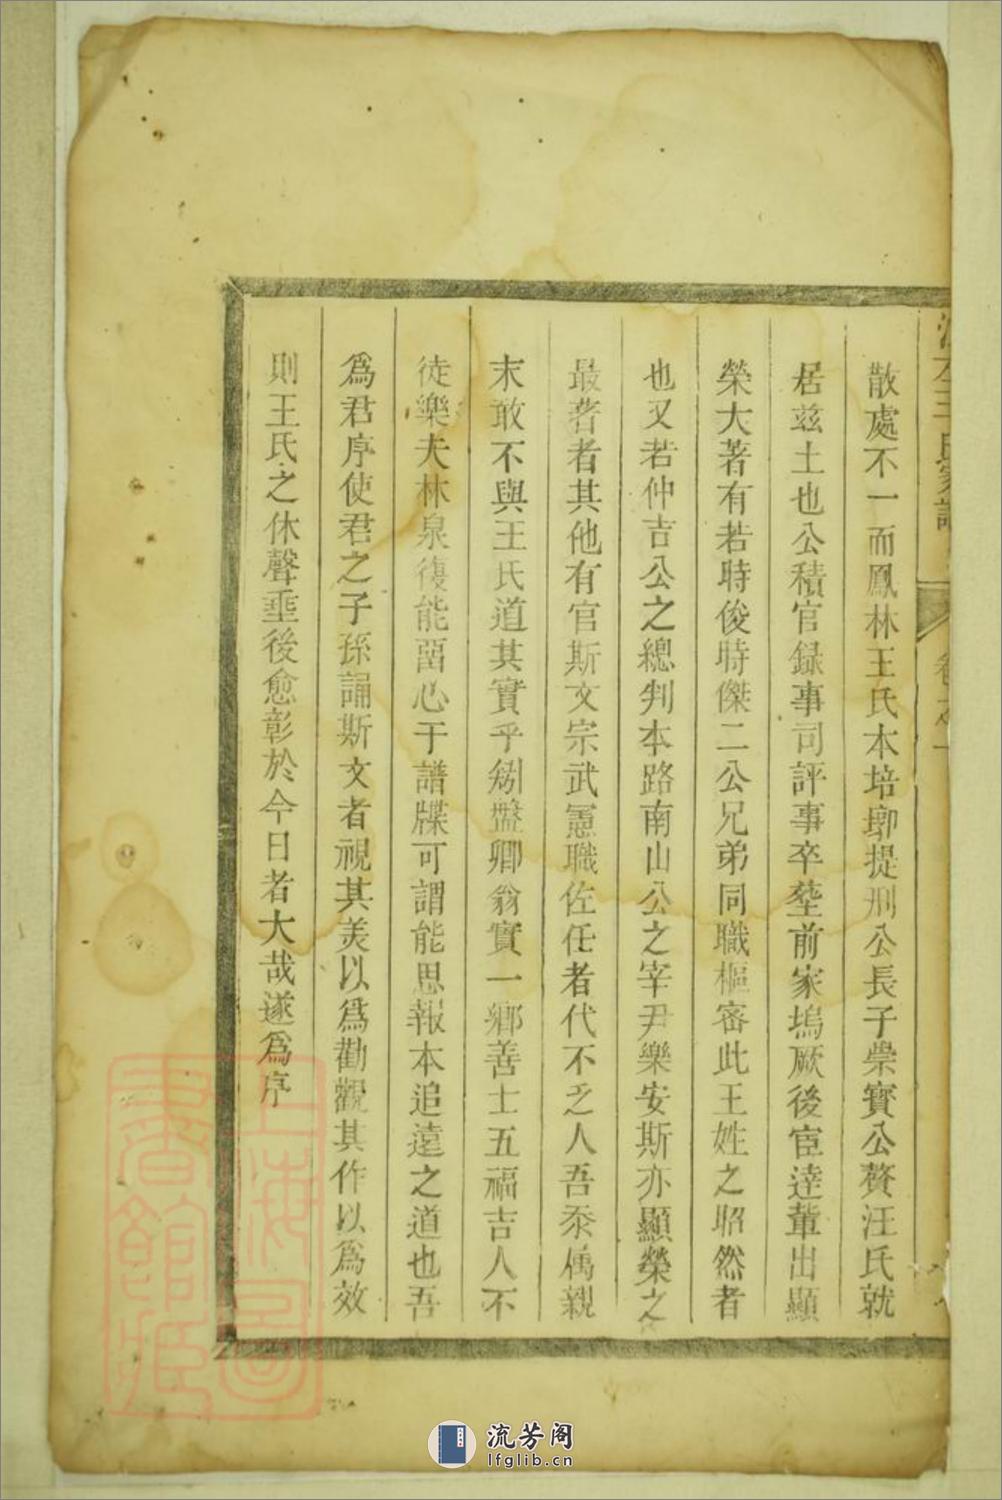 散處不一而鳳林王氏本培鄂提刑公長子崇實公贅汪氏就
居兹土也公積官録事司評事卒塟前家塢厥後宦達輩出顯
榮大著有若時俊時傑二公兄弟同職樞密此王姓之昭然者
也又若仲吉公之總判本路南山公之宰尹樂安斯亦顯榮之
最著者其他有官斯文宗武憲職佐任者代不乏人吾忝属親
末敢不與王氏道其實乎矧盤卿翁實一鄉善士五福吉人不
徒樂夫林泉復能留心于譜牒可謂能思報本追遠之道也吾
爲君序使君之子孫誦斯文者視其美以爲勸觀其作以爲效
則王氏之休聲垂後愈彰於今日者大哉遂爲序
上海圖書館藏
流芳阁
lfglib.cn